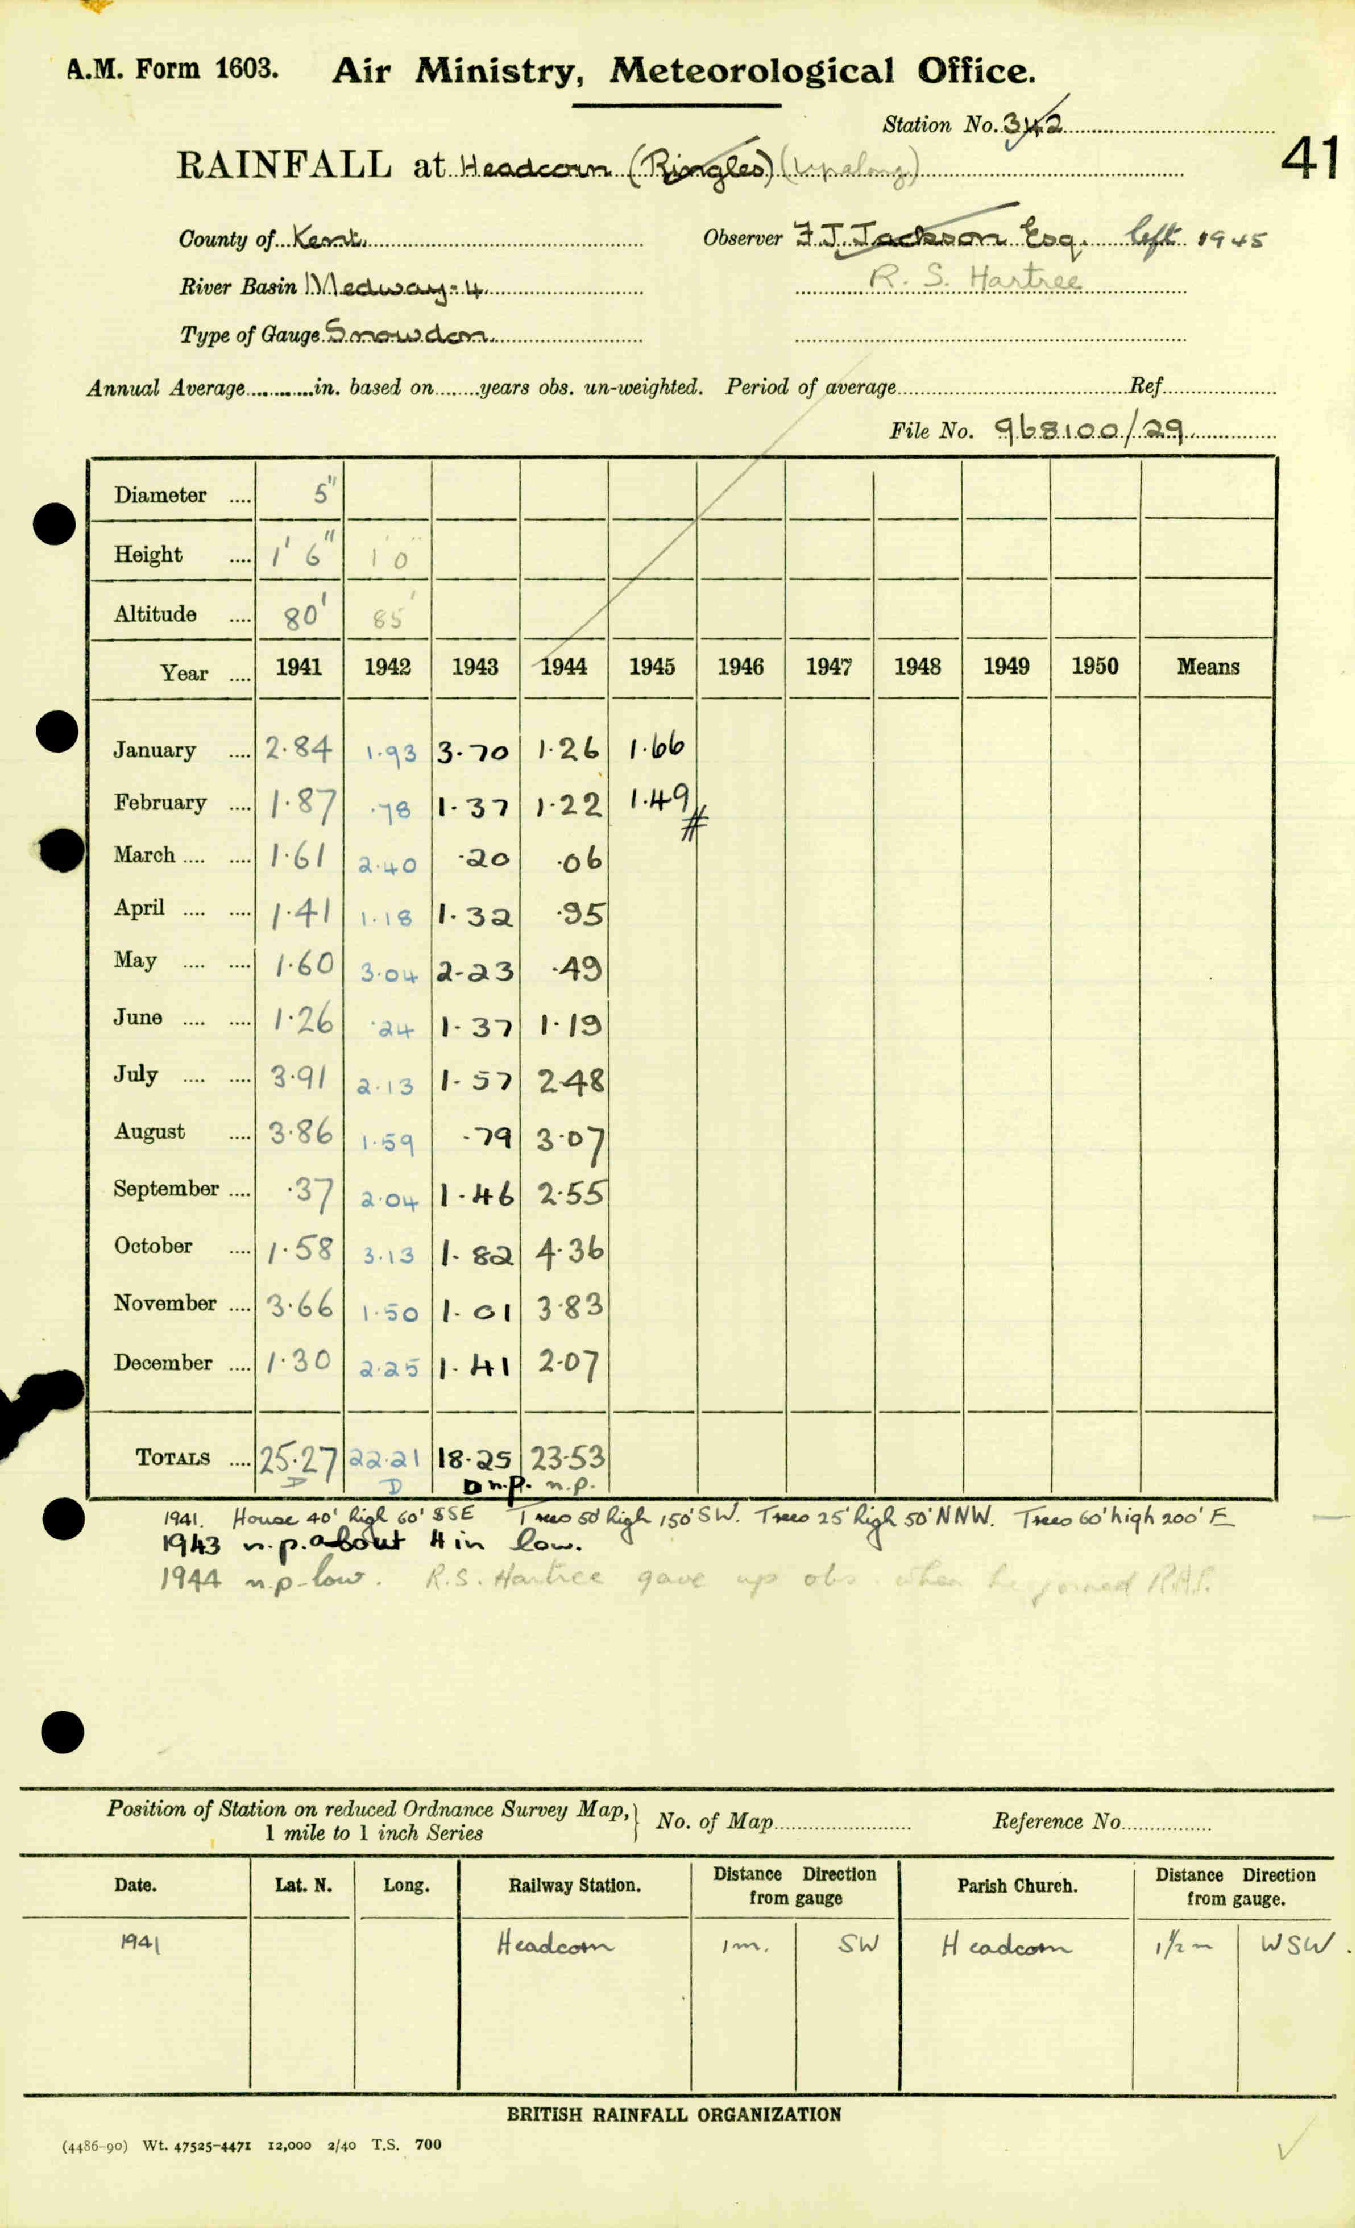 A.M. Form 1603. Air Ministry, Meteorological Office.
Station No. 342
41
RAINFALL at Headcorn (Ringles) (Upalong)
County of Kent. Observer F J Jackson Esq. left 1945
River Basin Medway-4 R. S. Hartree
Type of Gauge Snowdon
Annual Average in. based on years obs. un-weighted. Period of average Ref
File No. 968100/29
Diameter .... 5"
Height .... 1' 6" 1' 0"
Altitude .... 80' 85'
Year .... 1941 1942 1943 1944 1945 1946 1947 1948 1949 1950 Means
January .... 2.84 1.93 3.70 1.26 1.66
February .... 1.87 .78 1.37 1.22 1.49 #
March .... .... 1.61 2.40 .20 .06
April .... .... 1.41 1.18 1.32 .95
May .... .... 1.60 3.04 2.23 .49
June .... .... 1.26 .24 1.37 1.19
July .... .... 3.91 2.13 1.57 2.48
August .... 3.86 1.59 .79 3.07
September .... .37 2.04 1.46 2.55
October .... 1.58 3.13 1.82 4.36
November .... 3.66 1.50 1.01 3.83
December .... 1.30 2.25 1.41 2.07
TOTALS .... 25.27 22.21 18.25 23.53
D D D n.p. n.p.
1941. House 40' high 60' SSE Trees 50' high 150' SW. Trees 25' high 50' NNW. Trees 60' high 200' E
1943 n.p. about 4 in low.
1944 n.p-low. R.S. Hartree gave up obs. when he joined R.A.F.
Position of Station on reduced Ordnance Survey Map, } No. of Map Reference No.
1 mile to 1 inch Series
Date. Lat. N. Long. Railway Station. Distance Direction from gauge Parish Church. Distance Direction from gauge.
1941 Headcorn 1m. SW Headcorn 1½m WSW.
BRITISH RAINFALL ORGANIZATION
(4486-90) Wt. 47525-4471 12,000 2/40 T.S. 700